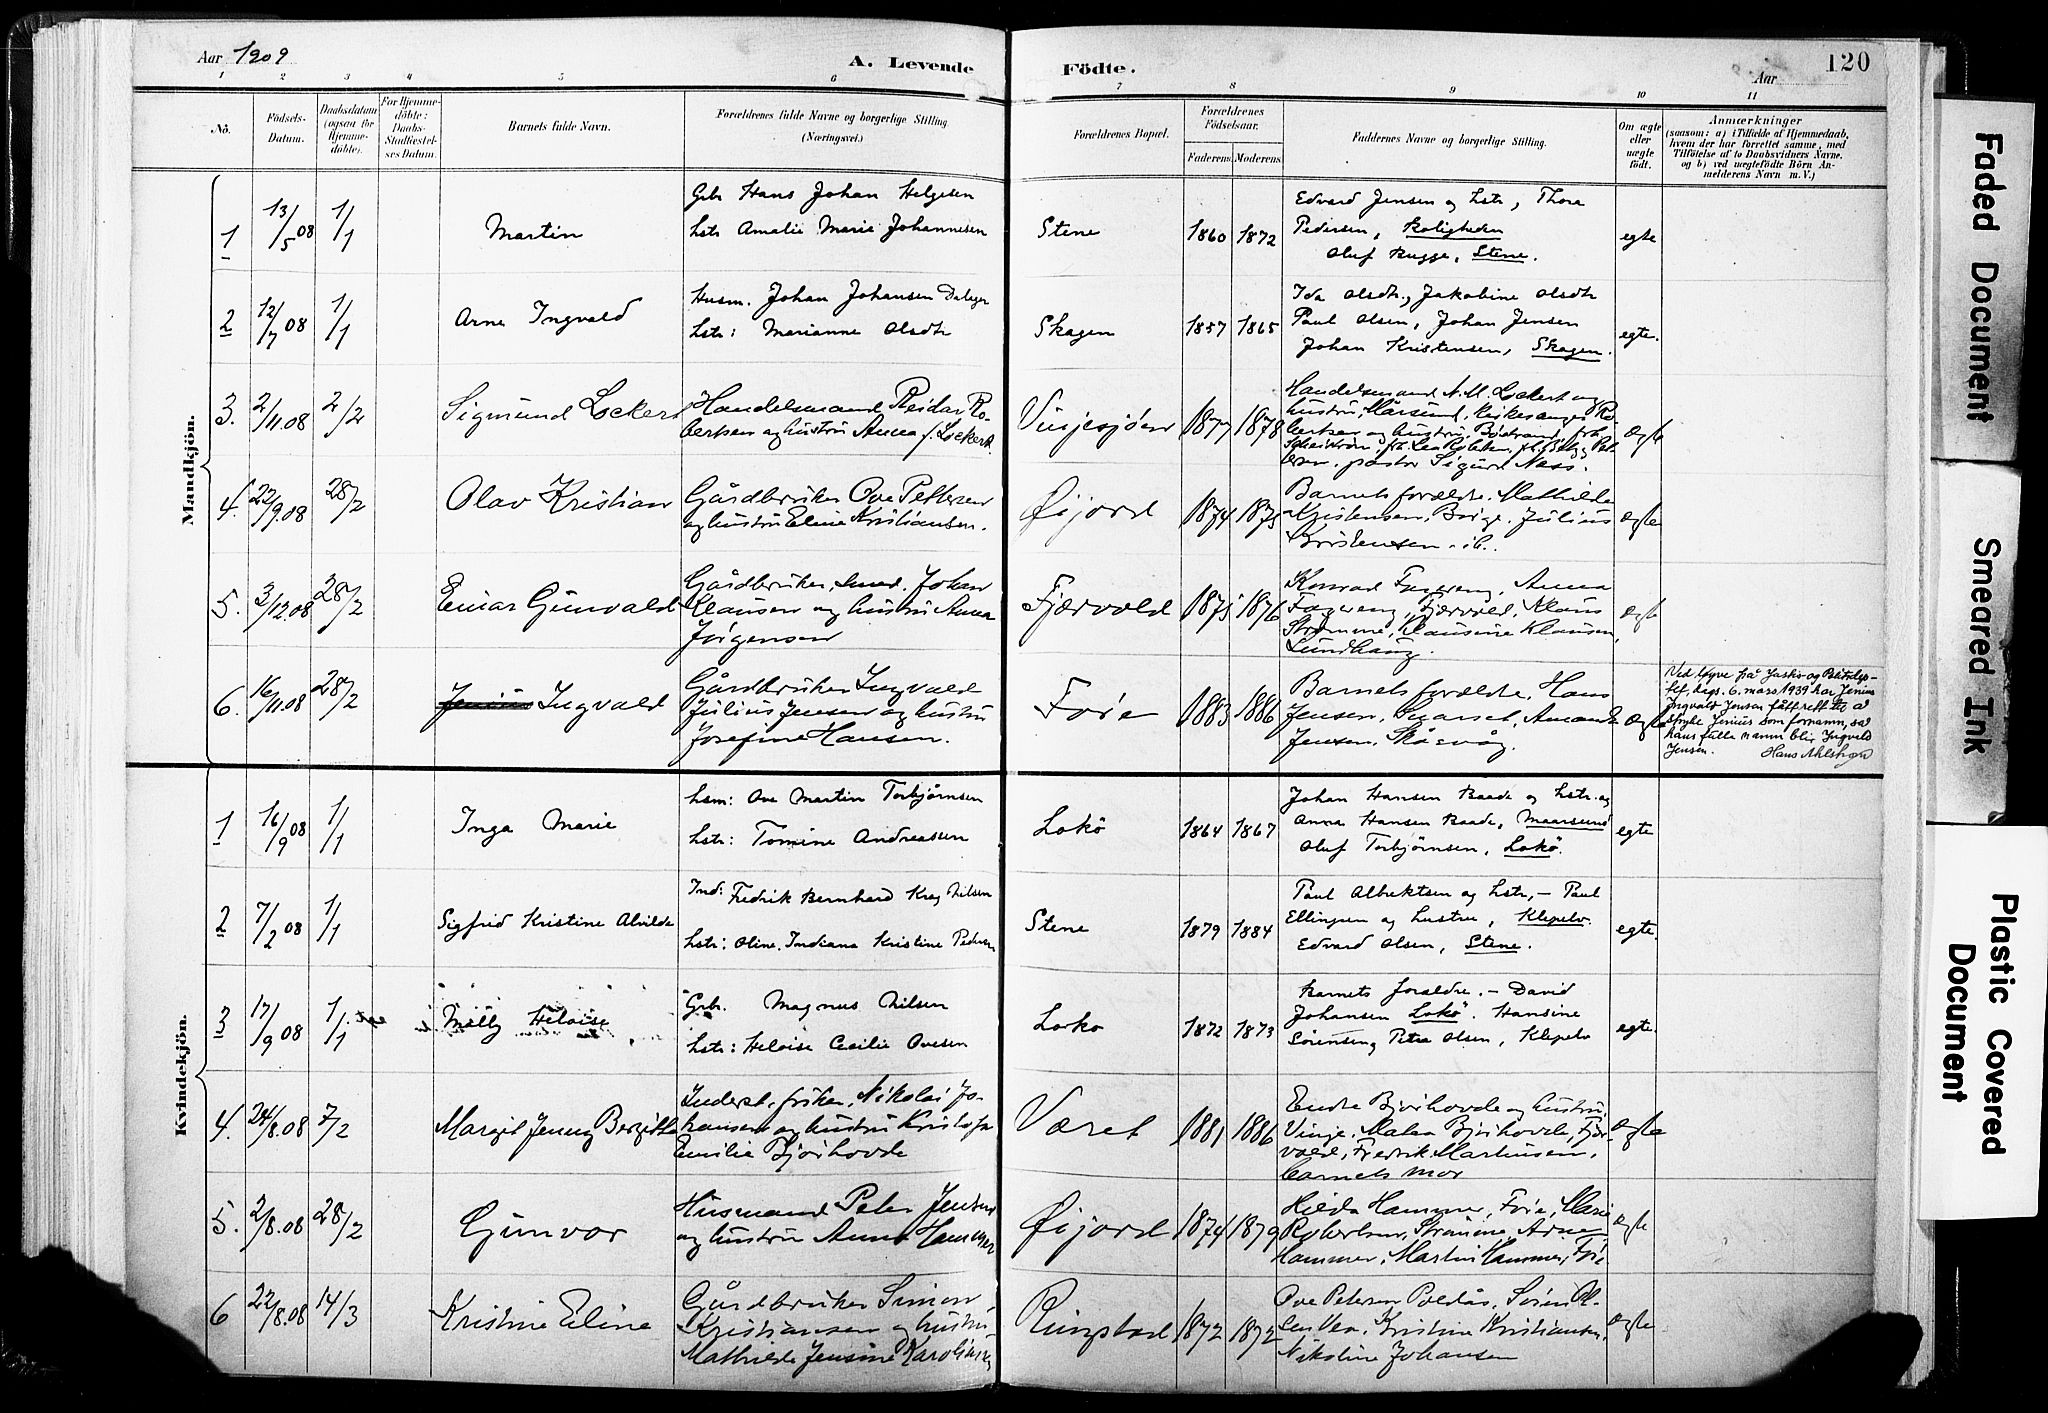 Aar 1909
A. Levende
Födte.
Aar
120
1 2 3 4 5 6 7 8 9 10 11
Nô.
Födsels-
Datum.
Daabsdatum
(ogsaa for
Hjemme-
döbte).
For Hjemme-
döbte:
Daabs-
Stadfæstel-
ses Datum.
Barnets fulde Navn.
Forældrenes fulde Navne og borgerlige Stilling
(Næringsvei.)
Forældrenes Bopæl.
Forældrenes
Födselsaar.
Faderens
Moderens
Faddernes Navne og borgerlige Stilling.
Om ægte
eller
uægte
födt.
Anmærkninger
(saasom: a) i Tilfælde af Hjemmedaab,
hvem der har forrettet samme, med
Tilföielse af to Daabsvidners Navne.
og b) ved uægtefödte Börn An-
melderens Navn m. V.)
Mandkjön.
1
13/5 08
1/1
Martin
Grb Hans Johan Helgesen
hstr Amalie Marie Johannesen
Stene
1860
1872
Edvard Jensen og hstr, Thora
Pedersen, Roligheden
Oluf Bugge, Stene.
egte
2
12/7 08
1/1
Arne Ingvald
Husm. Johan Johansen
hstr: Marianne Olsdtr
Skagen
1857
1865
Ida Olsdtr, Jakobine Olsdtr
Paul Olsen, Johan Jensen
Johan Kristensen, Skagen.
egte.
3.
2/11.08
2/2
Sigmund Lockert
Handelsmand Reidar Ro-
bertsen og hustru Anna f. Lockert.
Vinjesjøen
1877
1878
Handelsmand N.M. Lockert og
hustru, Maarsund, Kirkesanger Ro-
bertsen og hustru
pastor Sigurd Ness.
Ægte
4.
22/9.08
28/2
Olav Kristian
Gårdbruker Ove Pettersen
og hustru Eline Kristiansen.
Øijord
1874
1875
Barnets forældre. Mathilde
Kristensen, Julius
Kristensen. ib.
Ægte
5.
3/12.08
28/2
Einar Gunvald
Gårdbruker, Smed. Johan
Klausen og hustru Anna
Jörgensen
Fjærvold
1875
1876
Konrad Fagereng, Anna
Fagereng, Fjærvold, Klaus
Strømme, Klausine Klausen,
Lundhaug.
Ægte
6.
16/11.08
28/2
Jenius Ingvald
Gårdbruker Ingvald
Julius Jensen og hustru
Josefine Hansen.
Føre
1883
1886
Barnets forældre, Hans
Jensen, Amanda
Jensen, Skåevåg.
Ægte
Ved løyve frå Justis- og Politidep-
tet, dags. 6. mars 1939 har Jenius
Ingvald Jensen fått rett til å
stryke Jenius som fornamn, så
hans fulle namn blir Ingvald
Jensen. Hans Ahlstrøm
Kvindekjön.
1
16/9 08
1/1
Inga Marie
hsm: Ove Martin Torbjørnsen
hstr: Tomine Andreassen
Lokö
1864
1867
Johan Hansen Baade og hstr. og
Anna Hansen Baade, Maarsund
Oluf Torbjørnsen, Lokö.
egte
2
7/2 08
1/1
Sigfrid Kristine Alvilde
Ind: Fredrik Bernhard Krey Nilsen
hstr: Oline Indiana Kristine Pedersen
Stene
1879
1884
Paul Albrektsen og hstr, – Paul
Ellingsen og hustru, Klepelv
Edvard Olsen, Stene.
egte.
3
17/9 08
1/1
Molly Heloise
Grb. Magnus Nilsen
hstr: Heloise Cecilie Ovesen
Loko
1872
1873
Barnets foreldre. – David
Johansen Lokö. Hansine
Sörensen, Petra Olsen, Klepelv
egte.
4.
24/8.08
7/2
Margit Jenny Bergitte
Inderst, fisker, Nikolai Jo-
hansen og hustru Kristofa
Emilie Bjørhovde
Været
1881
1886
Endre Bjørhovde og hustru,
Vinje, Malea Bjørhovde, Fjær-
vold, Fredrik Martinsen,
barnets mor
Ægte
5.
2/8.08
28/2
Gunvor
Husmand Peter Jensen
og hustru Anna Hammer
Øijord
1874
1879
Hilda Hammer, Føre, Marie
Robertsen, Strømme, Arne
Hammer, Martin Hammer, Føre
Ægte
6
22/8.08
14/3
Kristine Eline
Gårdbruker Simon
Kristiansen og hustru
Mathilde Jensine Karolinius
Ringstad
1872
1872
Ove Petersen Poldås, Søren Ol-
sen Vea, Kristine Kristiansen,
Nikoline Johansen
Ægte
Faded Document
Smeared Ink
Plastic Covered
Document